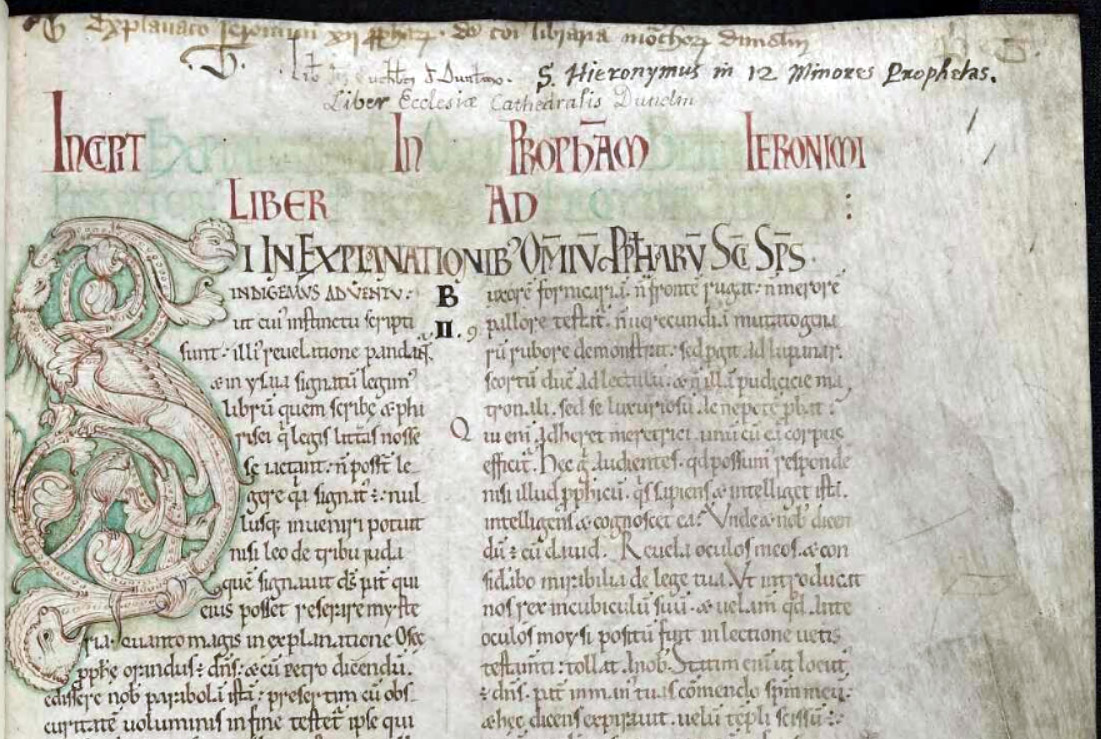 Explanacio Ieronimi xij pphaꝝ · de coi libraria monachoꝝ dunelm
B.
S. Hieronymus in 12 Minores Prophetas.
Liber Ecclesiæ Cathedralis Dunelm
INCIPIT IN PROPHAM IERONIMI
LIBER AD :
SI IN EXPLANATIONIB' OMIV PPHARV SCI SPS
INDIGEMUS ADVENTV:
ut cui' instinctu scripti
sunt: illi' reuelatione pandant᷑.
& in ysaia signatū legim'
librū quem scribę & pha
risei q̇ legis littas nosse
se iactant: n̄ posst le
gere q̇a signat' ÷ nul
lusq; inueniri potuit
nisi leo de tribu iuda
quē signauit ds pat̄ qui
eius posset reserare myste
ria: quanto magis in explanatione Osee
pphe orandus ÷ dns: & cū petro dicendū.
edissere nob parabolā istā: presertim cū obs
curitatē uoluminis in fine testet᷑ ipse qui
B
II.
uxorē fornicariā. n̄ frontē rugat: n̄ merorē
pallore testat᷑. n̄ uerecundiā mutatogena
rū rubore demonstrat. sed pgit ad lupanar.
scortū duc̄ ad lectulū. & n̄ illā pudicicie ma
tronali. sed se luxuriosū ac nepotē pbat:
Qui eni adheret meretrici. unū cū ea corpus
efficit᷑. Hec q̇ audientes. qd possum' responde
nisi illud ppheticū. q̇s sapiens & intelliget ista.
intelligens & cognoscet ea? Vnde & nob dicen
dū ÷ cū dauid. Reuela oculos meos. & con
sidabo mirabilia de lege tua. Vt introducat
nos rex in cubiculū suū. & uelam̄ qd ante
oculos moysi positū fuit in lectione uetis
testam̄ti: tollat a nob. Statim eni ut locut'
÷ dns. pat̄ in man' tuas com̄endo spm meū.
& hęc dicens expirauit. uelū tēpli scissū ÷: